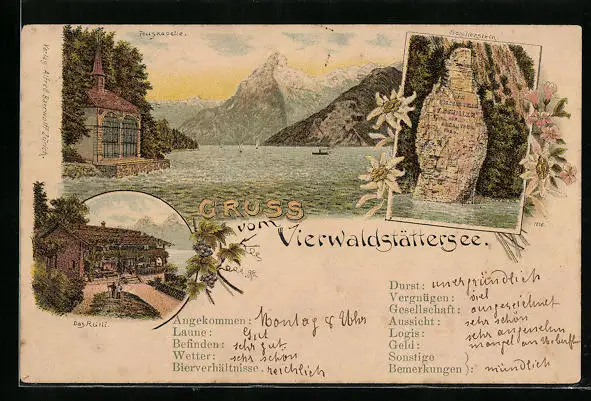 Tellskapelle.
Schillerstein.
Verlag Alfred Baerwolff Zürich.
GRUSS
vom
Vierwaldstättersee.
Das Rütli.
1216.
Angekommen: Montag 8 Uhr
Laune: Gut
Befinden: sehr gut
Wetter: sehr schön
Bierverhältnisse. reichlich
Durst: unergründlich
Vergnügen: viel
Gesellschaft: ausgezeichnet
Aussicht: sehr schön
Logis: sehr angesehn
Geld: mangel an
Sonstige
Bemerkungen: mündlich